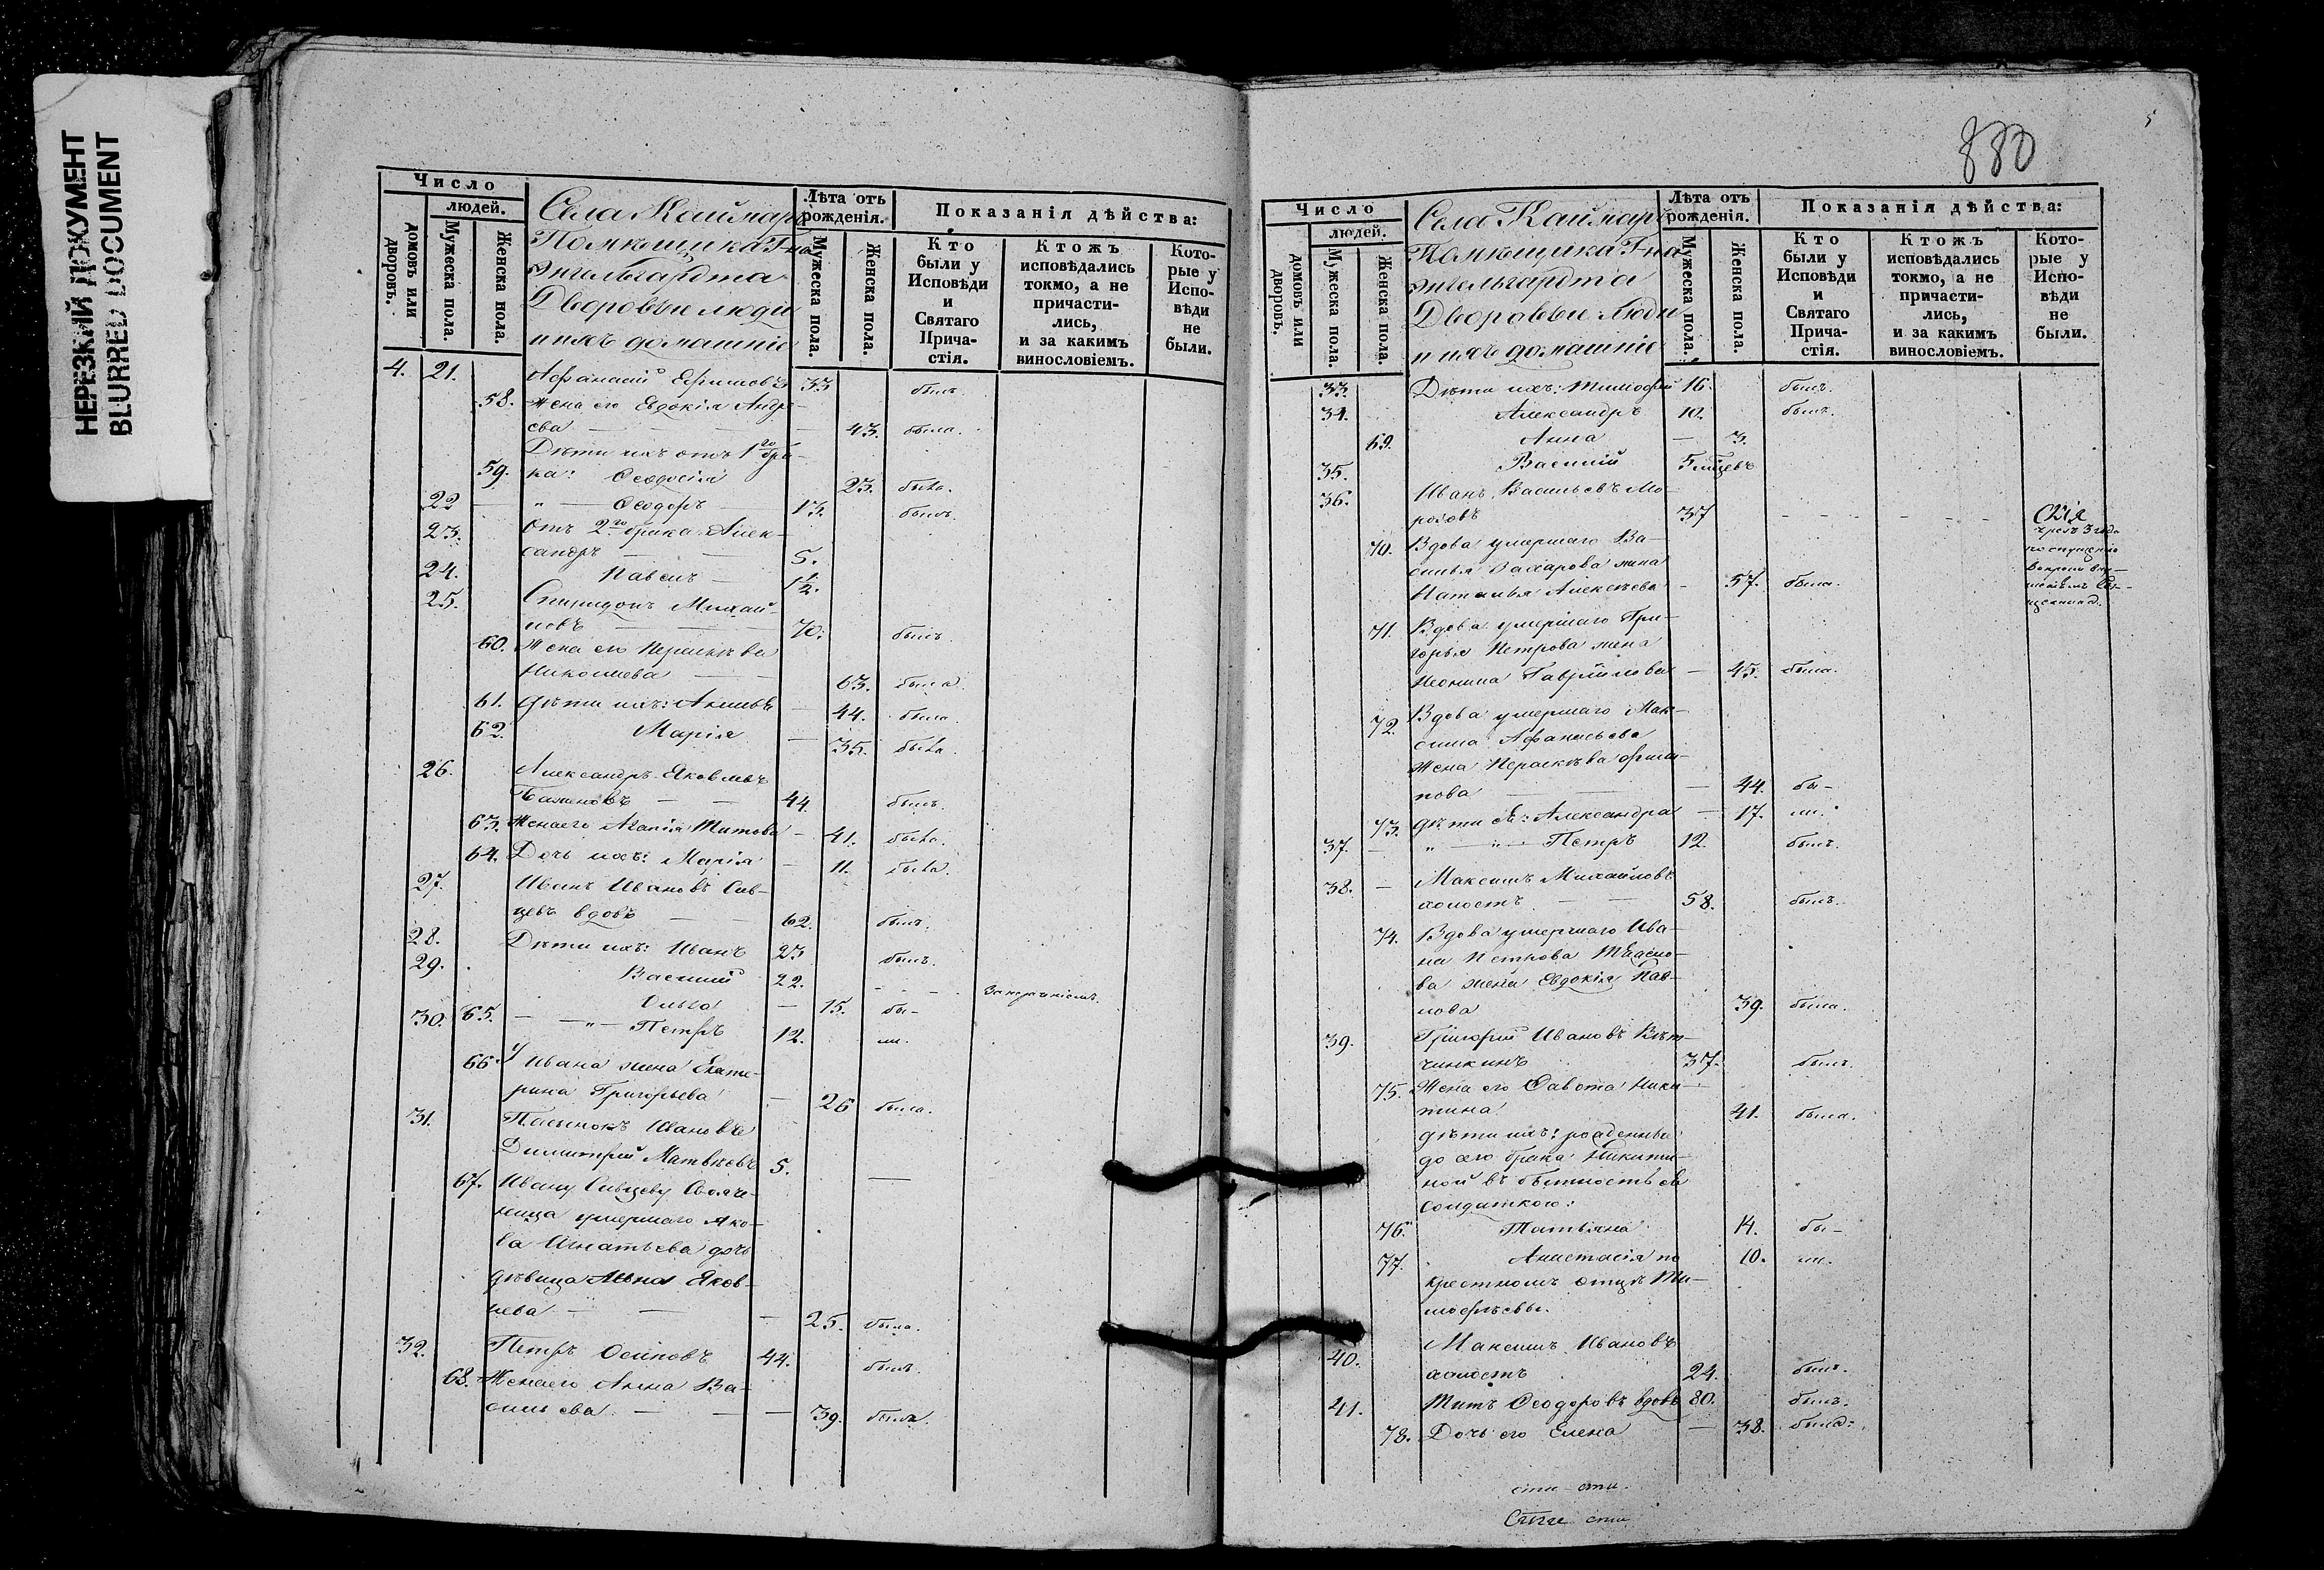 НЕРЕЗКИЙ ДОКУМЕНТ
BLURRED DOCUMENT
Число
людей.
домовъ или дворовъ.
Мужеска пола.
Женска пола.
Села Каймаръ
Помѣщика Г-на
Энгельгардта
Дворовые люди
и ихъ домашніе
Лѣта отъ рожденія.
Мужеска пола.
Женска пола.
Показанія дѣйства:
Кто были у Исповѣди и Святаго Прича-стія.
Ктожъ исповѣдались токмо, а не причасти-лись, и за какимъ винословіемъ.
Кото-рые у Испо-вѣди не были.
4. 21. Афанасій Ефимовъ 33 былъ.
58. Жена его Евдокія Андре-
ева — 43. была.
Дѣти ихъ отъ 1го бра-
59. ка: Ѳеодосія 23. была.
22 — " — Ѳеодоръ 13. былъ.
23. Отъ 2го брака Алек-
сандръ — 5.
24. Павелъ — 1/2.
25. Спиридонъ Михай-
ловъ — 70. былъ.
60. Жена его Параскѣва
Николаева — 63. была.
61. Дѣти ихъ: — 44. была.
62. Марія — 35. была.
26. Александръ Яковлевъ
Баженовъ — — 44. былъ.
63. Жена его Агапія Титова — 41. была.
64. Дочь ихъ: Марія — 11. была.
27. Иванъ Ивановъ Сив-
цевъ вдовъ — 62. былъ.
28. Дѣти ихъ: Иванъ 23 былъ.
29. Василій 22. - -
65. Ольга — 15. бы-
30. — " — Петръ 12. ли.
66. У Ивана жена Екате-
рина Григорьева — 26 была.
31. Пасынокъ Ивановъ
Димитрій Матвѣевъ 5. —
67. Ивану Сивцеву Своячe-
ница умершаго Яко-
ва Игнатьева дочь
дѣвица Яков-
лева — — 25. была.
32. Петръ Осиповъ 44. былъ.
68. Жена его Анна Ва-
сильева — — 39. была.
880
5
Число
людей.
домовъ или дворовъ.
Мужеска пола.
Женска пола.
Села Каймаръ
Помѣщика Г-на
Энгельгардта
Дворовые люди
и ихъ домашніе
Лѣта отъ рожденія.
Мужеска пола.
Женска пола.
Показанія дѣйства:
Кто были у Исповѣди и Святаго Прича-стія.
Ктожъ исповѣдались токмо, а не причасти-лись, и за какимъ винословіемъ.
Кото-рые у Испо-вѣди не были.
33. Дѣти ихъ: Тимофей 16. былъ.
34. Александръ 10. былъ.
69. Анна — 3.
35. Василій
36. Иванъ Васильевъ Мо-
розовъ 37 - - - - -
70. Вдова умершаго Ва-
силья Захарова жена
Наталья Алексѣева — 57. была.
71. Вдова умершаго Гри-
горья Петрова жена
Неонила Гаврійлова — 45. была.
72. Вдова умершаго Мак-
сима Афанасьева
жена Параскѣва Филип-
пова — 44. бы-
73. Дѣти ея: Александра — 17. ли.
37. — " — " — Петръ 12. былъ.
38. — Максимъ Михайловъ
холостъ — — 58. былъ.
74. Вдова умершаго Ива-
на Петрова
ва жена Евдокія Пав-
лова 39. была.
39. Григорій Ивановъ Вят-
чинкинъ 37. былъ.
75. Жена его Ники-
тина 41. была.
дѣти ихъ: рожденныя
до сего брака Никити-
ной въ бытность ея
солдаткою:
76. Татьяна 14. бы-
77. Анастасія по 10. ли.
крестномъ отцѣ Ти-
мофѣевы.
40. Максимъ Ивановъ
холостъ 24. былъ.
41. Титъ Ѳеодоровъ вдовъ 80. былъ.
78. Дочь его Елена — 38. была.